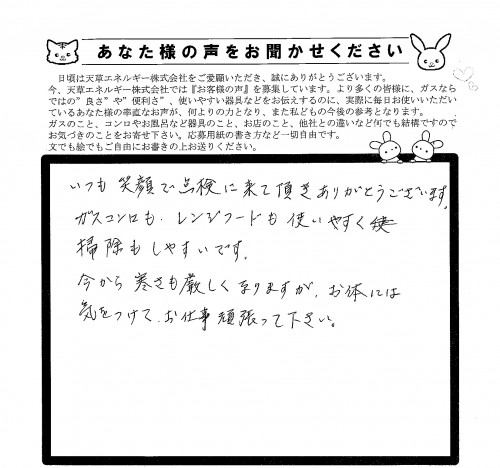 あなた様の声をお聞かせください
日頃は天草エネルギー株式会社をご愛顧いただき、誠にありがとうございます。
今、天草エネルギー株式会社では『お客様の声』を募集しています。より多くの皆様に、ガスなら
ではの”良さ”や”便利さ”、使いやすい器具などをお伝えするのに、実際に毎日お使いいただい
ているあなた様の率直なお声が、何よりの力となり、また私どもの今後の参考となります。
ガスのこと、コンロやお風呂など器具のこと、お店のこと、他社との違いなど何でも結構ですので
お気づきのことをお寄せ下さい。応募用紙の書き方など一切自由です。
文でも絵でもご自由にお書きの上お送りください。
いつも笑顔で点検に来て頂きありがとうございます。
ガスコンロも、レンジフードも使いやすく
掃除もしやすいです。
今から寒さも厳しくなりますが、お体には
気をつけて、お仕事頑張って下さい。